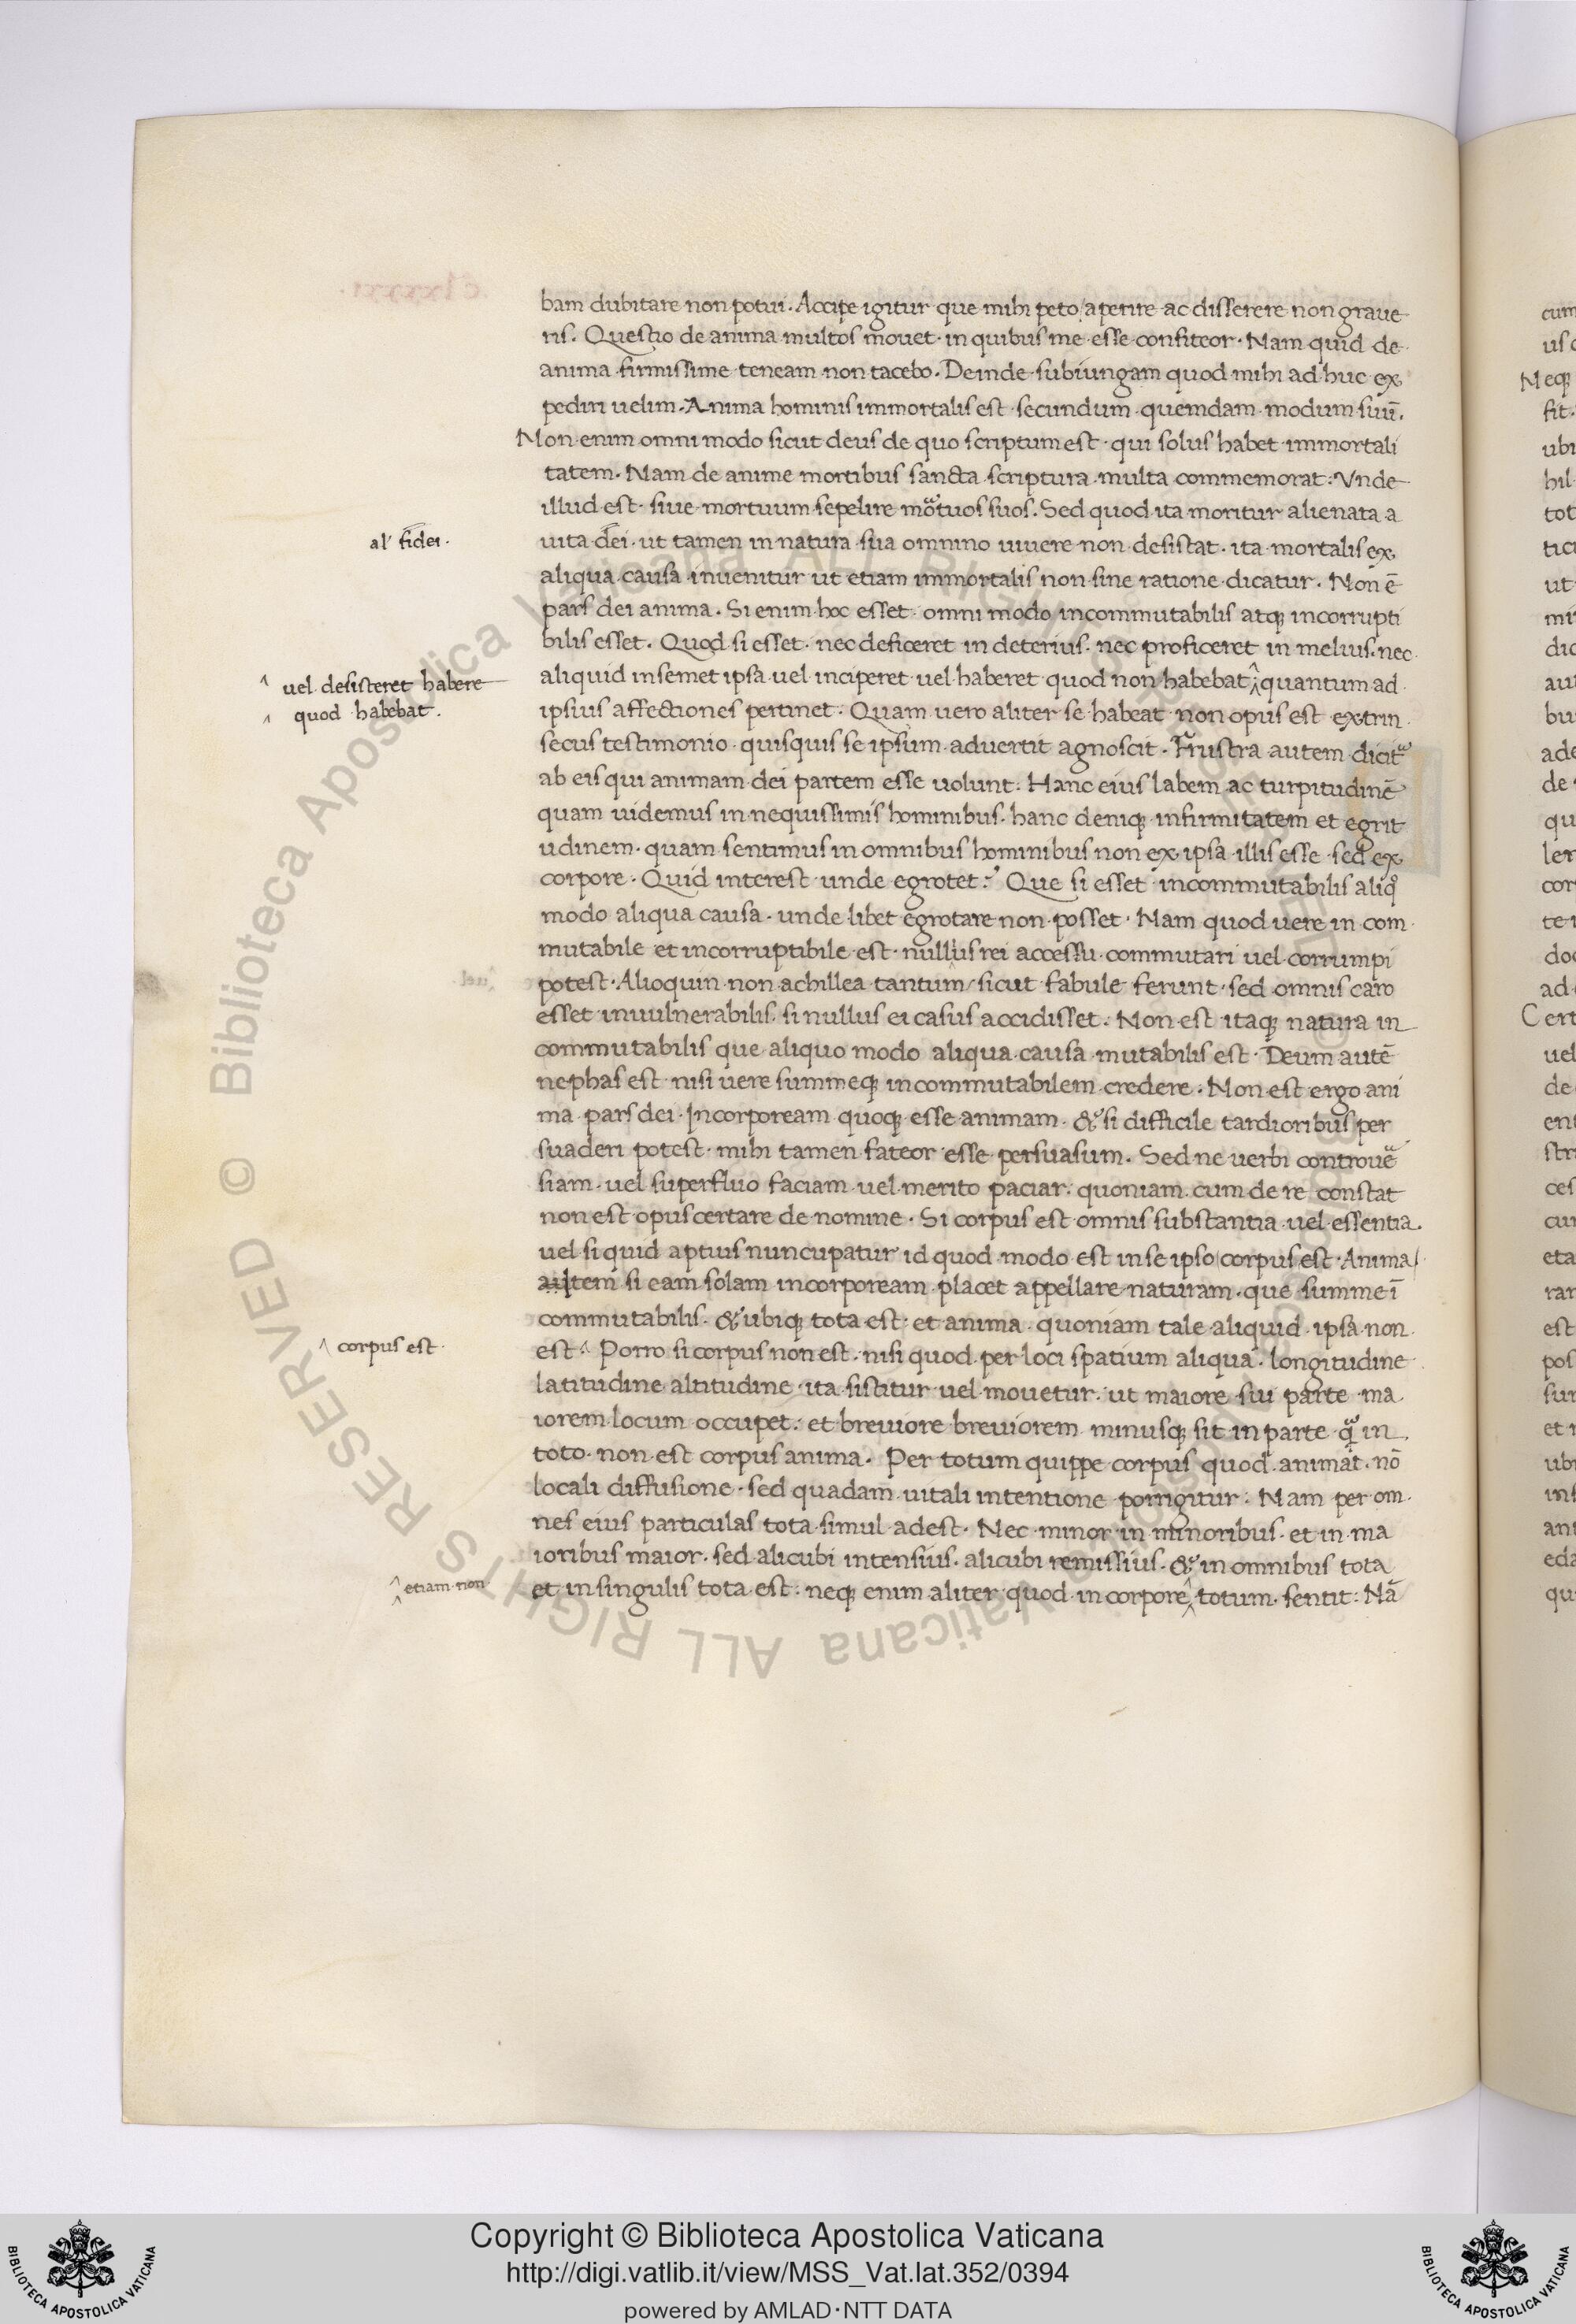 bam dubitare non potui. Accipe igitur que mihi peto aperire ac disserere non graue
ris. Questio de anima multos mouet. in quibus me esse confiteor. Nam quid de
anima firmissime teneam non tacebo. Deinde subiungam quod mihi ad huc ex
pediri uelim. Anima hominis immortalis est secundum quemdam modum suū.
Non enim omni modo sicut deus de quo scriptum est. qui solus habet immortali
tatem. Nam de anime mortibus sancta scriptura multa commemorat: Vnde
illud est. siue mortuum sepelire mortuos suos. Sed quod ita moritur alienata a
al' fidei.
uita dei. ut tamen in natura sua omnino uiuere non desistat. ita mortalis ex
aliqua causa inuenitur ut etiam immortalis non sine ratione dicatur. Non ē
pars dei anima. Si enim hoc esset omni modo incommutabilis atq; incorrupti
bilis esset. Quod si esset. nec deficeret in deterius. nec proficeret in melius. nec
uel desisteret habere
quod habebat.
aliquid in semet ipsa uel inciperet uel haberet quod non habebat quantum ad
ipsius affectiones pertinet. Quam uero aliter se habeat non opus est extrin
secus testimonio quisquis se ipsum aduertit agnoscit. Frustra autem dicit
ab eis qui animam dei partem esse uolunt: Hanc eius labem ac turpitudinē
quam uidemus in nequissimis hominibus. hanc deniq; infirmitatem et egrit
udinem. quam sentimus in omnibus hominibus non ex ipsa illis esse sed ex
corpore. Quid interest unde egrotet: Que si esset incommutabilis aliqo
modo aliqua causa. unde libet egrotare non posset. Nam quod uere in com
mutabile et incorruptibile est. nullius rei accessu commutari uel corrumpi
potest. Alioquin non achillea tantum sicut fabule ferunt. sed omnis caro
esset inuulnerabilis. si nullus ei casus accidisset. Non est itaq; natura in
commutabilis que aliquo modo aliqua causa mutabilis est. Deum autē
nephas est nisi uere summeq; incommutabilem credere. Non est ergo ani
ma pars dei. Incorpoream quoq; esse animam. & si difficile tardioribus per
suaderi potest. mihi tamen fateor esse persuasum. Sed ne uerbi controue
siam. uel superfluo faciam uel merito paciar. quoniam cum de re constat
non est opus certare de nomine. Si corpus est omnis substantia uel essentia.
uel si quid aptius nuncupatur id quod modo est in se ipso corpus est. Anima
autem si eam solam incorpoream placet appellare naturam. que summe ī
commutabilis. & ubiq; tota est: et anima quoniam tale aliquid ipsa non
corpus est.
est. Porro si corpus non est. nisi quod per loci spatium aliqua longitudine
latitudine altitudine ita sistitur uel mouetur. ut maiore sui parte ma
iorem locum occupet: et breuiore breuiorem minusq; sit in parte q in
toto. non est corpus anima. Per totum quippe corpus quod animat. nō
locali diffusione. sed quadam uitali intentione porrigitur: Nam per om
nes eius particulas tota simul adest. Nec minor in minoribus. et in ma
ioribus maior. sed alicubi intensius. alicubi remissius. & in omnibus tota
etiam non
et in singulis tota est: neq; enim aliter quod in corpore totum. sentit: Nā
cum
us
Neq;
fit.
ubi
hil
tot
ut
ade
de
cor
doc
ad
Cert
uel
de
est
et
ubi
Biblioteca Apostolica Vaticana ALL RIGHTS RESERVED ©
BIBLIOTECA APOSTOLICA VATICANA
Copyright © Biblioteca Apostolica Vaticana
http://digi.vatlib.it/view/MSS_Vat.lat.352/0394
powered by AMLAD·NTT DATA
BIBLIOTECA APOSTOLICA VATICANA